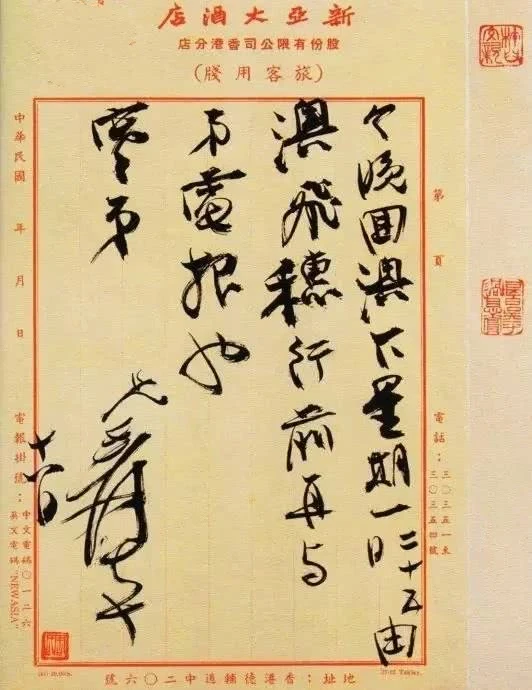 新亞大酒店
股份有限公司香港分店
(旅客用牋)
第 頁
電話：三〇三五一至
三〇三五四號
今晚囬澳下星期一二十五日由
澳飛穗行前再与
弟電報也
夢弟
兄爰
十八日
中華民國 年 月 日
電報掛號：中文電碼〇一二六
英文電碼"NEWASIA"
地址：香港德輔道中二〇六號